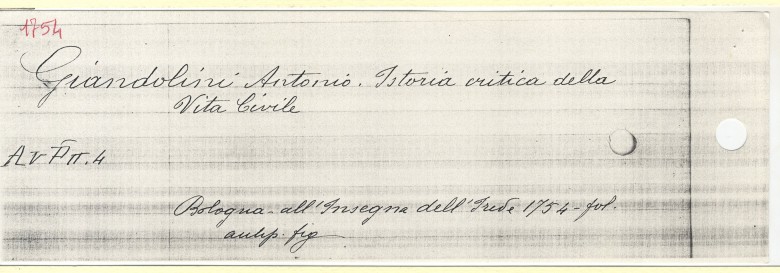 1754
Giandolini Antonio. Istoria critica della
Vita Civile
A V
Bologna - all'Insegna dell' 1754 - fol.
fig